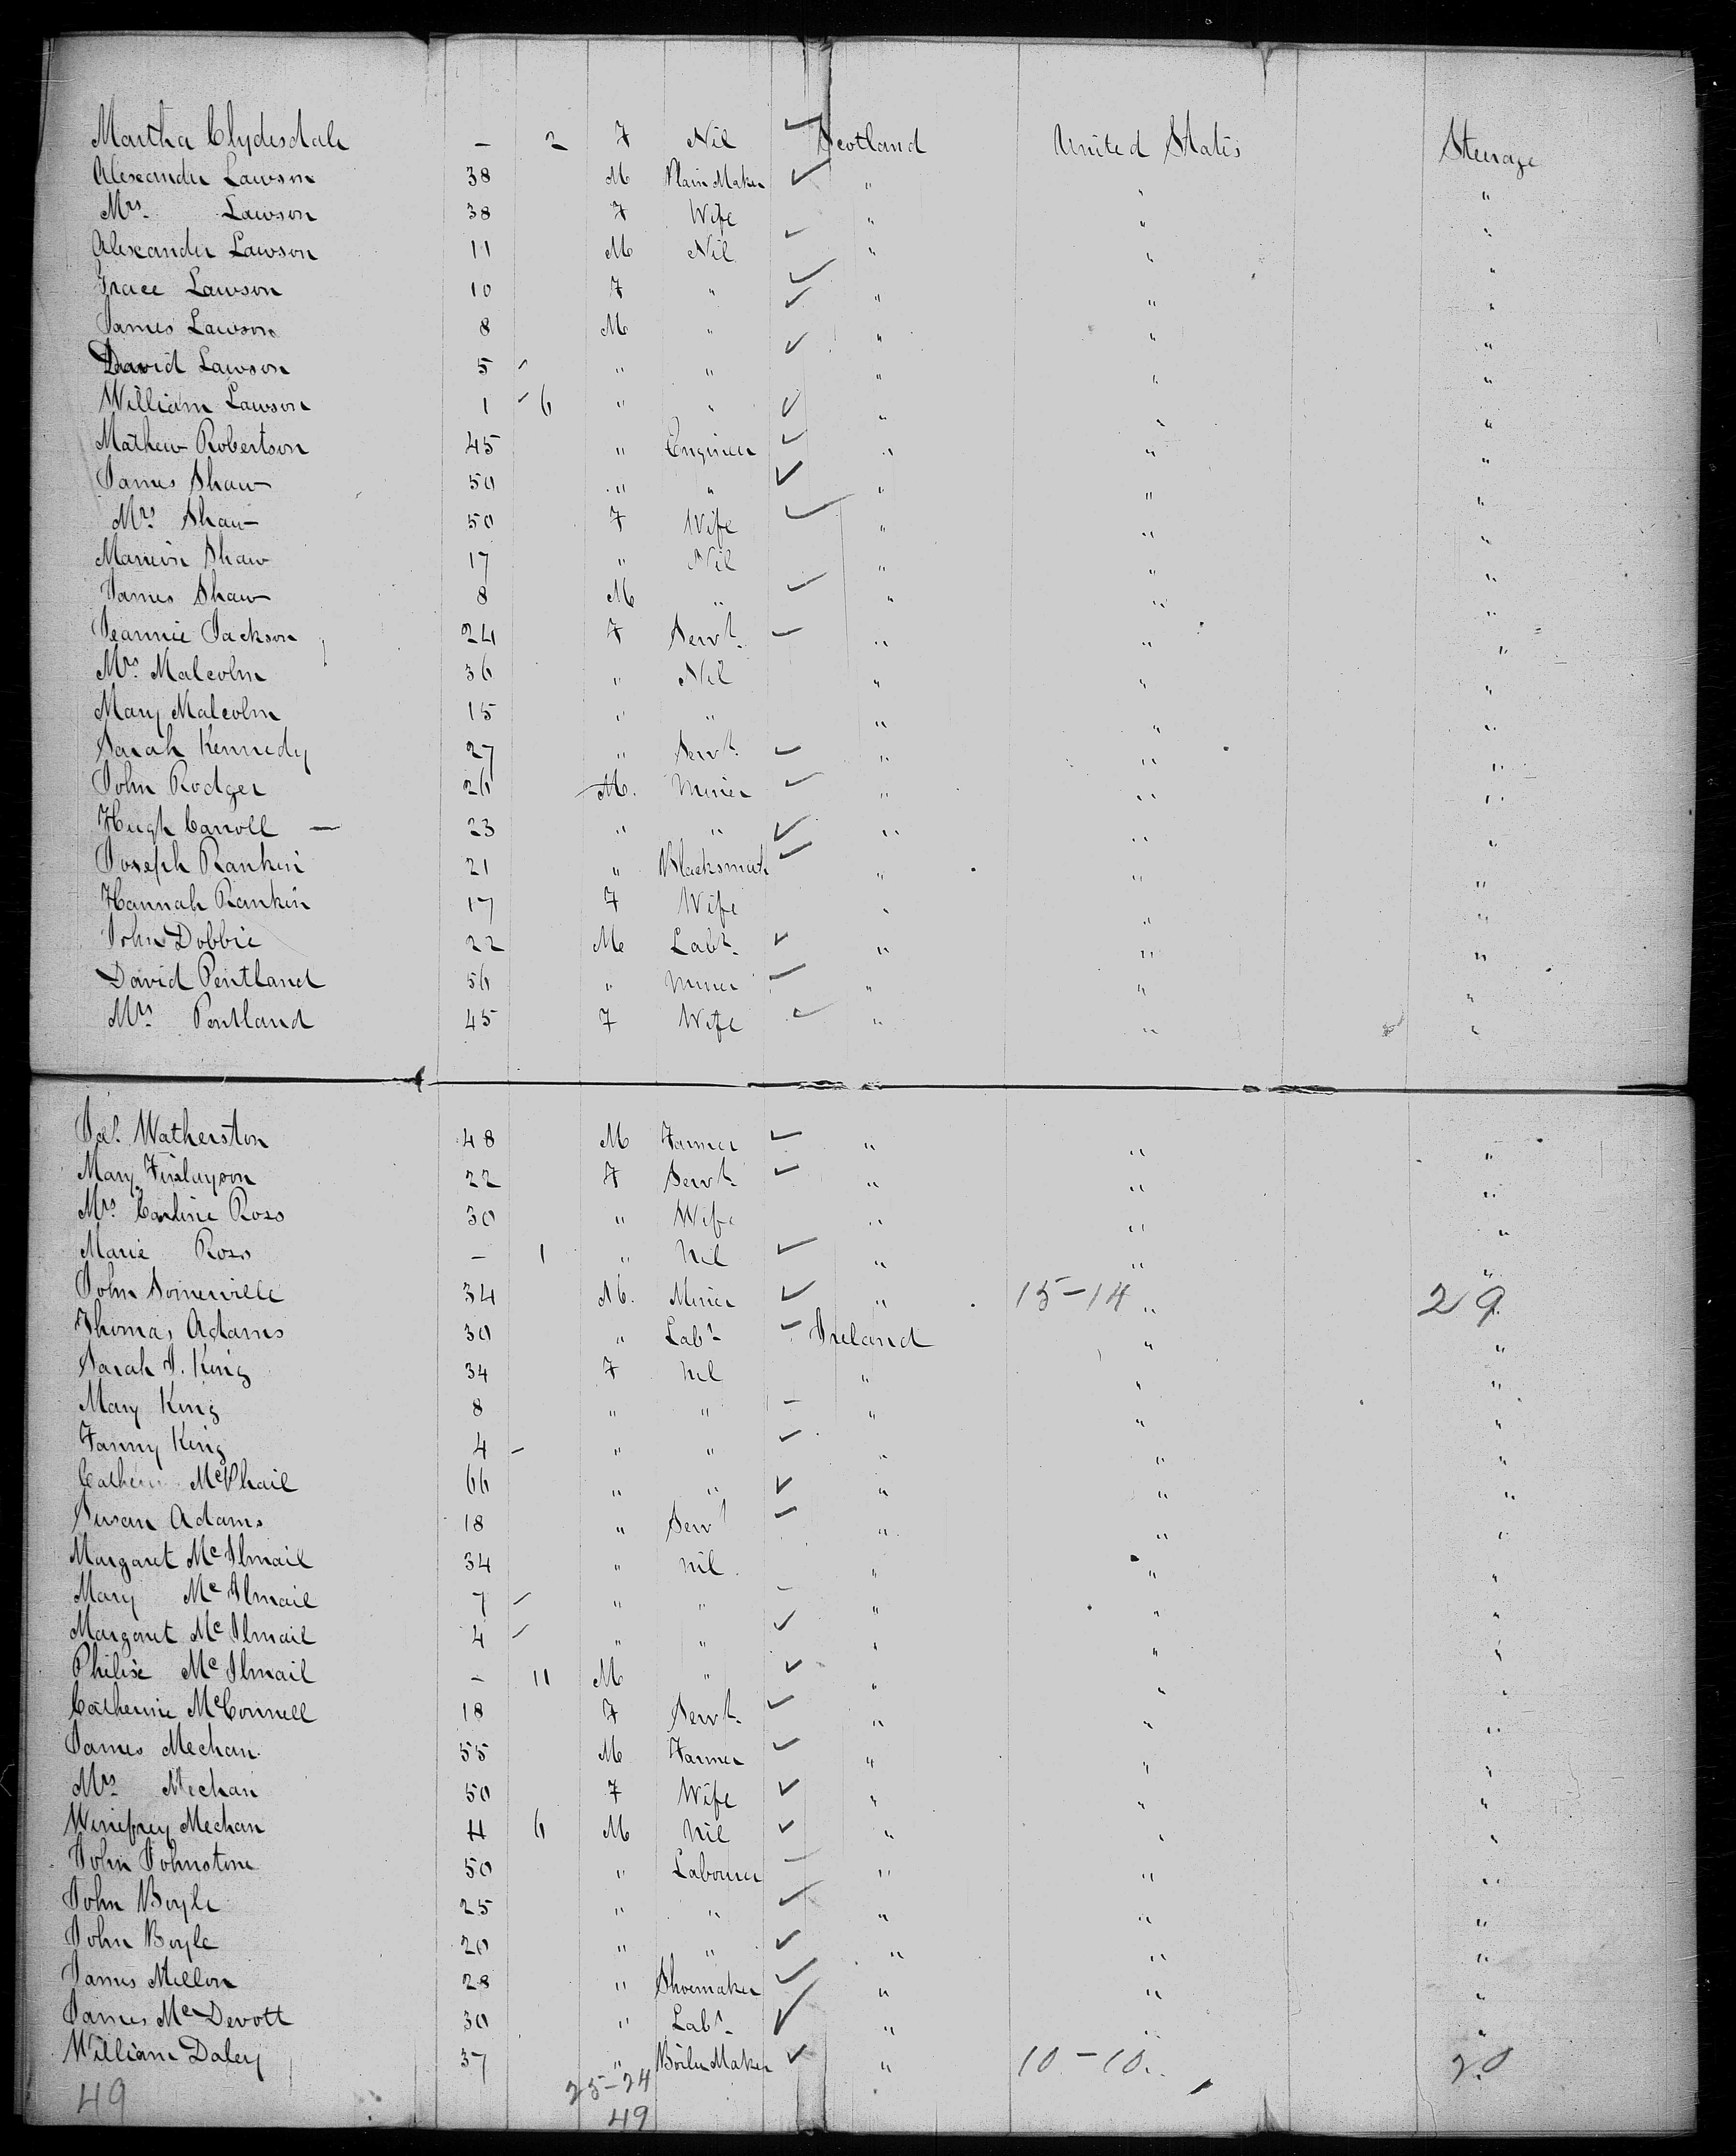 Martha Clydesdale - 2 F Nil ✓ Scotland United States Steerage
Alexander Lawson 38 M Plain Maker ✓ " " "
Mrs. Lawson 38 F Wife " " "
Alexander Lawson 11 M Nil ✓ " " "
Grace Lawson 10 F " ✓ " " "
James Lawson 8 M " ✓ " " "
David Lawson 5 - " " ✓ " " "
William Lawson 1 - 6 " " ✓ " " "
Mathew Robertson 45 " Engineer ✓ " " "
James Shaw 50 " " ✓ " " "
Mrs Shaw 50 F Wife ✓ " " "
Marion Shaw 17 " Nil " " "
James Shaw 8 M " ✓ " " "
Jeannie Jackson 24 F Servt. ✓ " " "
Mrs. Malcolm 36 " Nil " " "
Mary Malcolm 15 " " " " "
Sarah Kennedy 27 " Servt. ✓ " " "
John Rodger 26 M. Miner ✓ " " "
Hugh Carroll - 23 " " ✓ " " "
Joseph Rankin 21 " Blacksmith ✓ " " "
Hannah Rankin 17 F Wife " " "
John Dobbie 22 M Labr. ✓ " " "
David Pentland 56 " Miner ✓ " " "
Mrs. Pentland 45 F Wife ✓ " " "
Jas. Watherston 48 M Farmer ✓ " " "
Mary Finlayson 22 F Servt. ✓ " " "
Mrs. Carline Ross 30 " Wife " " "
Marie Ross - 1 " Nil ✓ " " "
John Somerville 34 M. Miner ✓ " 15-14 " 29
Thomas Adams 30 " Labr ✓ Ireland " "
Sarah J. King 34 F Nil " " "
Mary King 8 " " - " " "
Fanny King 4 - " " ✓ " " "
McPhail 66 " " ✓ " " "
Susan Adams 18 " Servt ✓ " " "
Margaret McIlmail 34 " Nil. " " "
Mary McIlmail 7 - " " - " " "
Margaret McIlmail 4 - " " ✓ " " "
McIlmail - 11 M " ✓ " " "
Catherine McConnell 18 F Servt. ✓ " " "
James Mechan. 55 M Farmer ✓ " " "
Mrs Mechan 50 F Wife ✓ " " "
Winifrey Mechan 4 6 M Nil ✓ " " "
John Johnstone 50 " Labourer ✓ " " "
John Boyle 25 " " ✓ " " "
John Boyle 20 " " ✓ " " "
James Mellon 28 " Shoemaker ✓ " " "
James McDevott 30 " Labr. ✓ " " "
William Daley 37 " Boiler Maker ✓ " 10-10 " 20
49 25-24
49